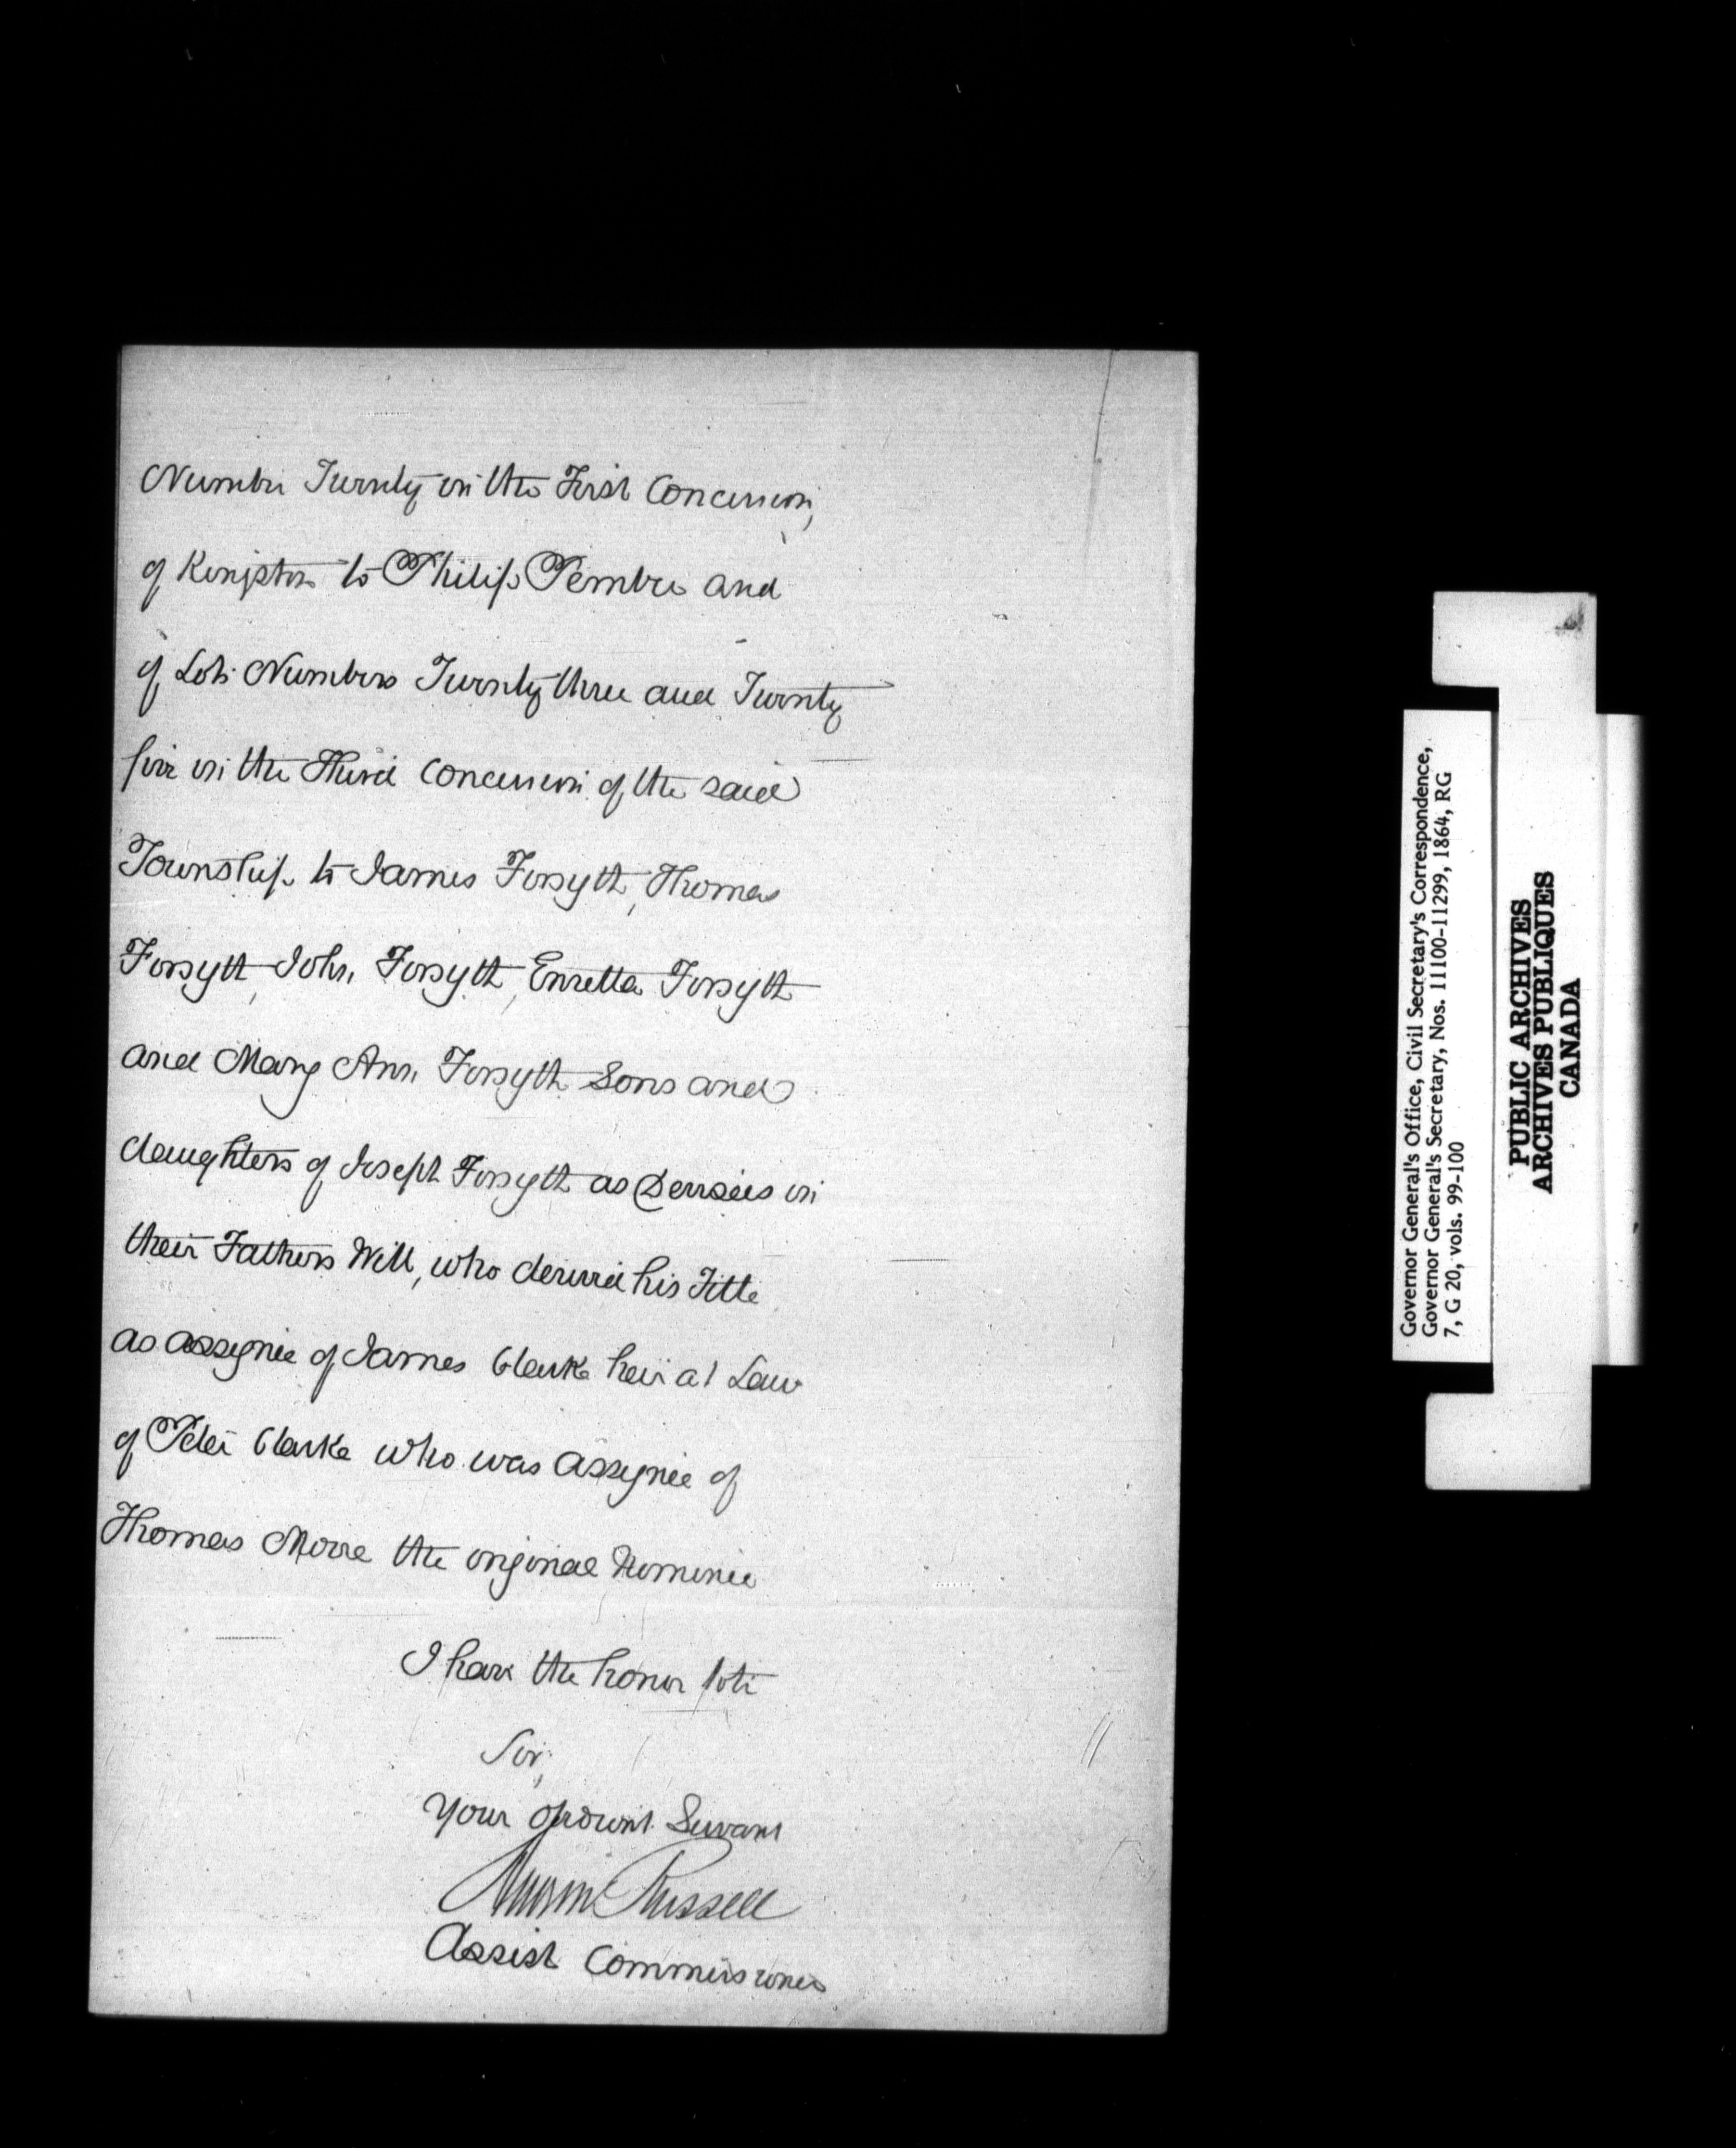 Number Twenty in the First Concession,
of Kingston to Philip Pember and
of Lots Numbers Twenty three and Twenty
five in the Third Concession of the said
Township to James Forsyth, Thomas
Forsyth, John Forsyth, Enretta Forsyth
and Mary Ann Forsyth Sons and
daughters of Joseph Forsyth as Devisees in
their Fathers Will, who derived his Title
as assignee of James Clarke heir at Law
of Peter Clarke who was assignee of
Thomas Moore the original Nominee
I have the honor to be
Sir,
Your Obedient Servant
Russell
Assist Commissioner
Governor General's Office, Civil Secretary's Correspondence,
Governor General's Secretary, Nos. 11100-11299, 1864, RG
7, G 20, vols. 99-100
PUBLIC ARCHIVES
ARCHIVES PUBLIQUES
CANADA